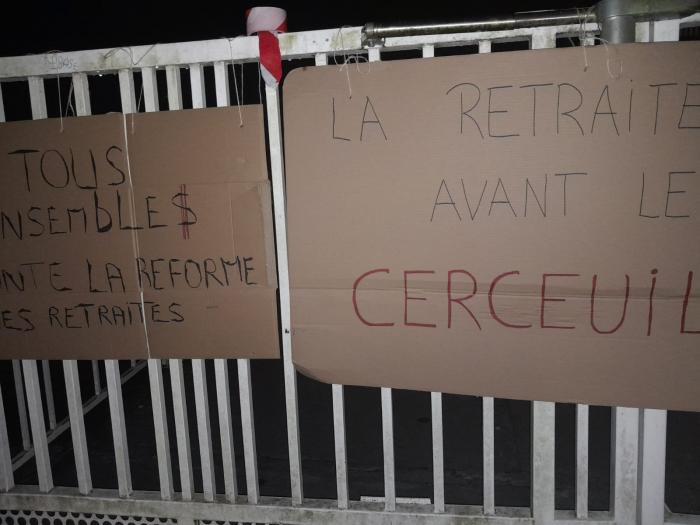 TOUS
ENSEMBLE$
LA REFORME
RETRAITES
LA RETRAITE
AVANT LE
CERCEUIL